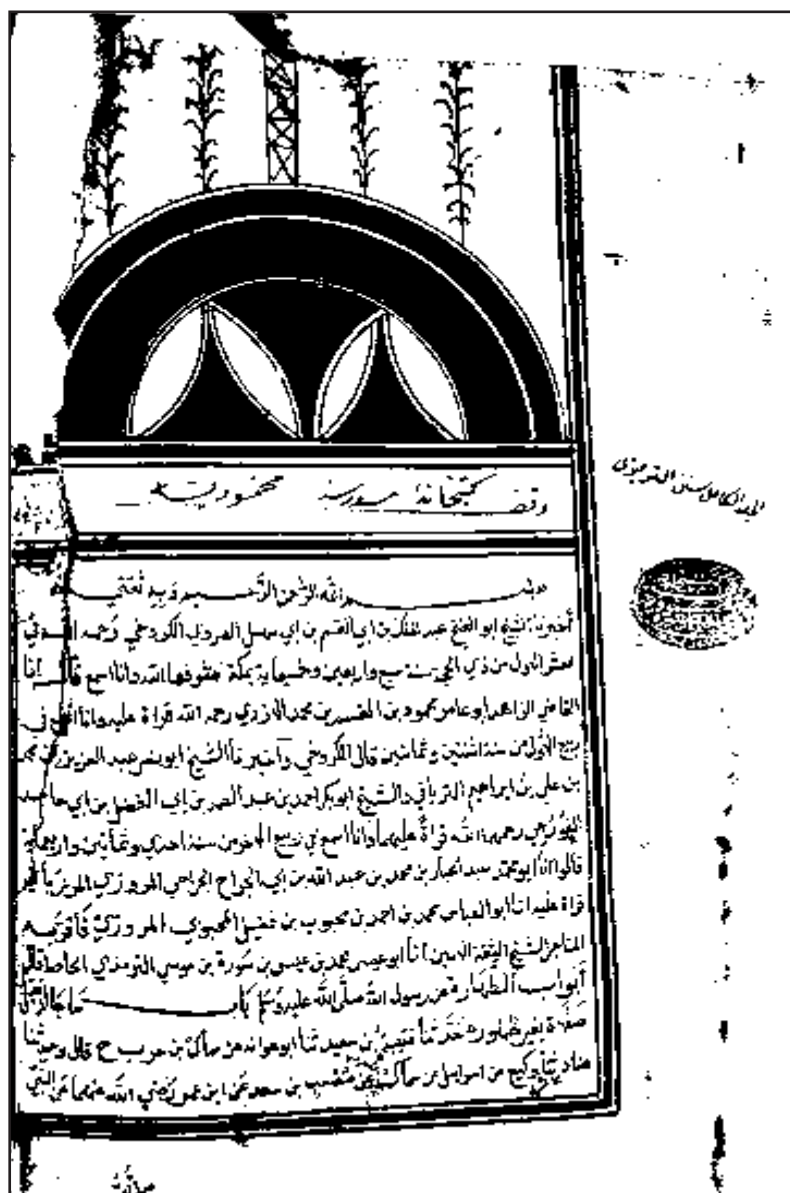 وقف كتبخانة مدرسه محموديه
الجلد الكامل سنن الترمذي
بسم الله الرحمن الرحيم وبه ثقتي
أخبرنا الشيخ ابو الفتح عبد الملك بن ابي القسم بن ابي سهل الهروي الكروخي رحمه الله في
العشر الاول من ذي الحجة سنة سبع واربعين وخمسماية بمكة شرفها الله وانا اسمع قال انا
القاضي الزاهد ابو عامر محمود بن القسم بن محمد الازدي رحمه الله قراة عليه وانا اسمع في
ربيع الاول من سنة اثنتين وثمانين قال الكروخي وأخبرنا الشيخ ابو نصر عبد العزيز بن محمد
بن علي بن ابراهيم الترياقي والشيخ ابو بكر احمد بن عبد الصمد بن ابي الفضل بن ابي حامد
الغورجي رحمهما الله قراة عليهما وانا اسمع في ربيع الاخر من سنة احدي وثمانين واربعماية
قالوا انا ابو محمد عبد الجبار بن محمد بن عبد الله بن ابي الجراح الجراحي المروزي المرزباني
قراة عليه انا ابو العباس محمد بن احمد بن محبوب بن فضيل المحبوبي المروزي فأقر به
الشيخ الثقة الامين انا ابو عيسى محمد بن عيسى بن سورة بن موسي الترمذي الحافظ قال
أبواب الطهارة عن رسول الله صلى الله عليه وسلم باب ما جا لا تقبل
صلاة بغير طهور حدثنا قتيبة بن سعيد ثنا ابو عوانة عن سماك بن حرب ح قال وحدثنا
هناد ثنا وكيع عن اسرايل عن سماك عن مصعب بن سعد عن ابن عمر رضي الله عنهما عن النبي